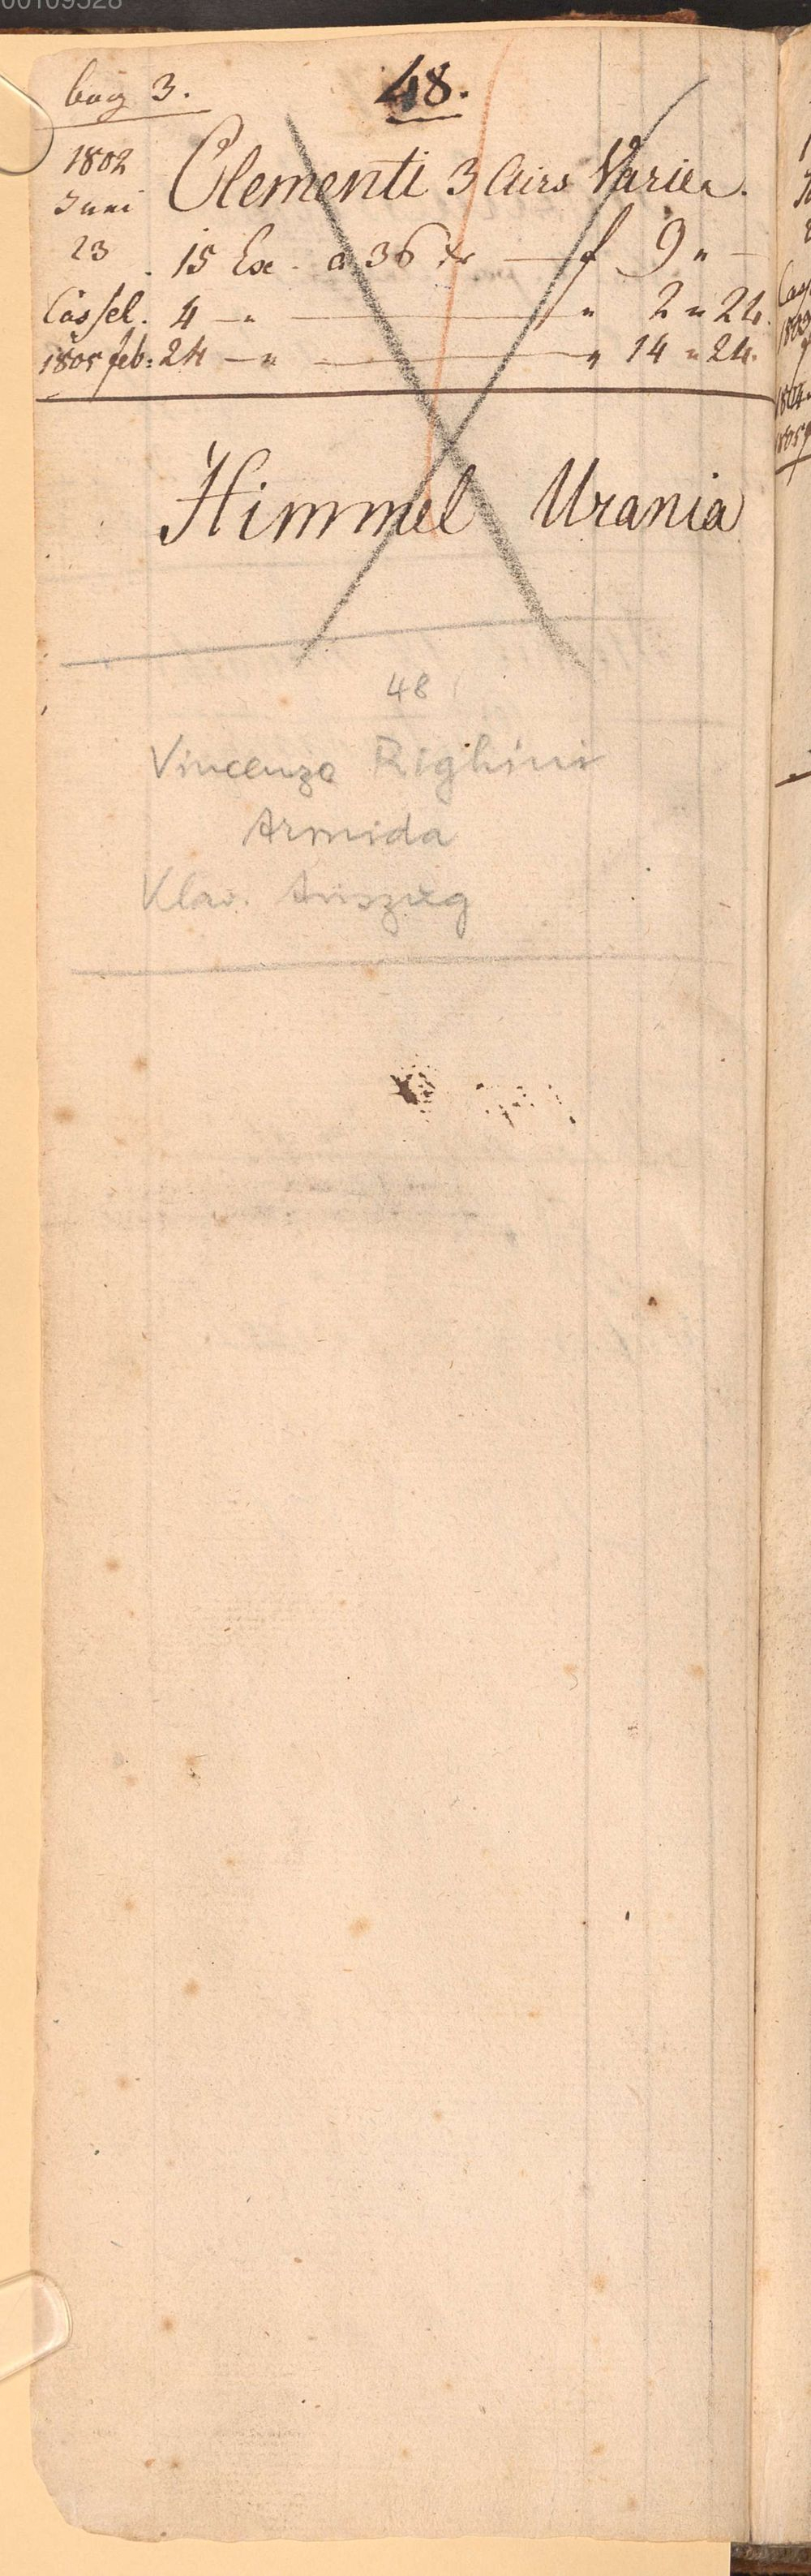 00109328
bog 3. 48.
1802 Clementi 3 Airs Varien.
Juni
23 . 15 Ex. a 36 Xr — f 9 " —
Cassel. 4 — " — " 2 " 24.
1805 feb: 24 — " — " 14 " 24.
Himmel Urania
48
Vincenzo Righini
Armida
Klav. Auszug